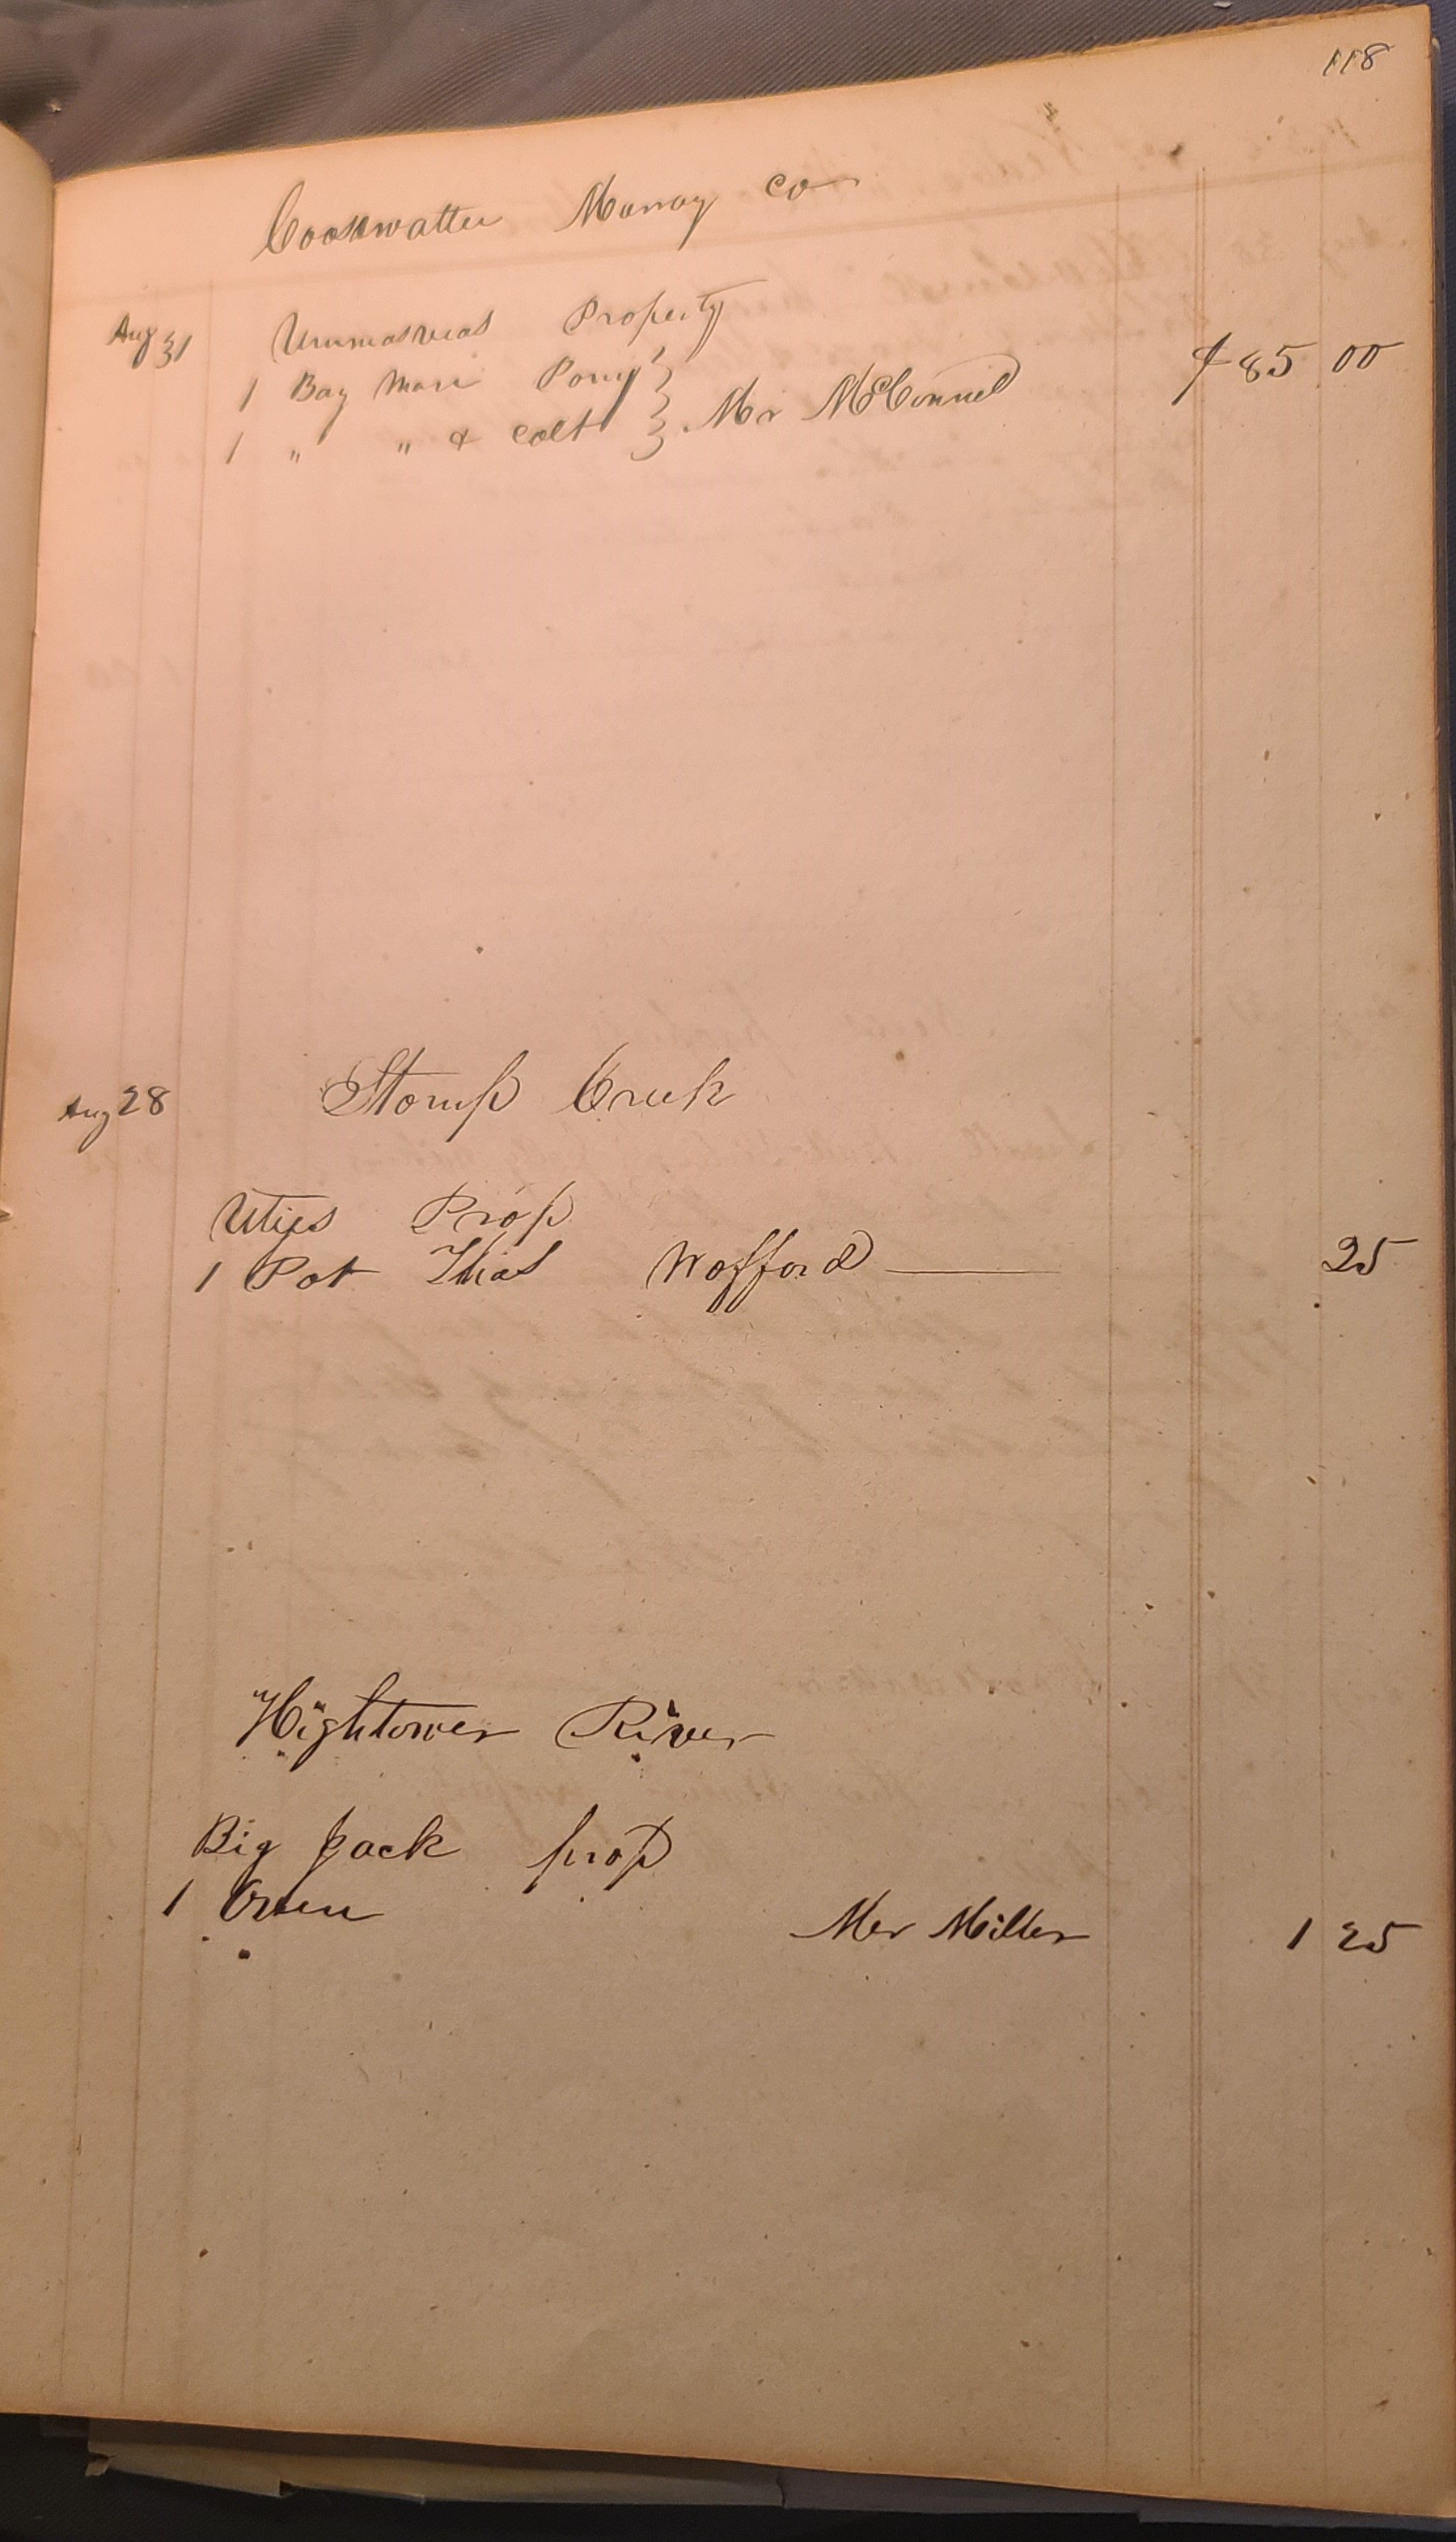 118
Coosawattee Murray Co
Aug 31 Property
1 Bay Mare Pony } $85 00
1 " " & Colt } Mr McConnel
Aug 28 Stomp Creek
Uties Prop
1 Pot Thos Wofford 25
Hightower River
Big Jack prop
1 Oven Mer Miller 1 25